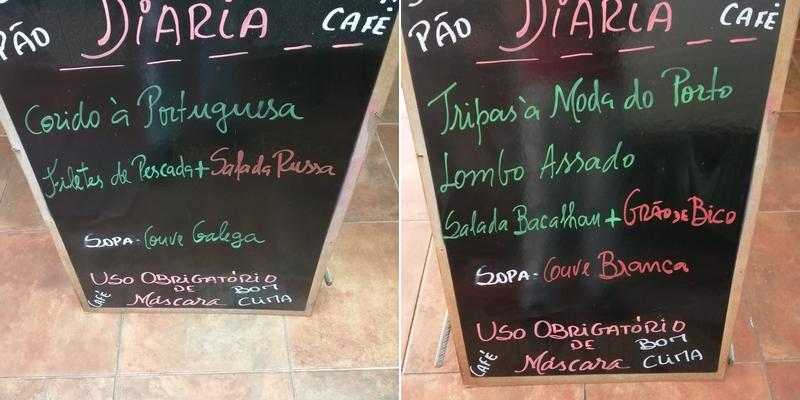 DIÁRIA
PÃO
CAFÉ
Cozido à Portuguesa
Filetes de Pescada + Salada Russa
SOPA - Couve Galega
USO OBRIGATÓRIO
DE
Máscara
CAFÉ
BOM
CLIMA
DIÁRIA
PÃO
CAFÉ
Tripas à Moda do Porto
Lombo Assado
Salada Bacalhau + GRÃO DE BICO
SOPA - Couve Branca
USO OBRIGATÓRIO
DE
Máscara
CAFÉ
BOM
CLIMA